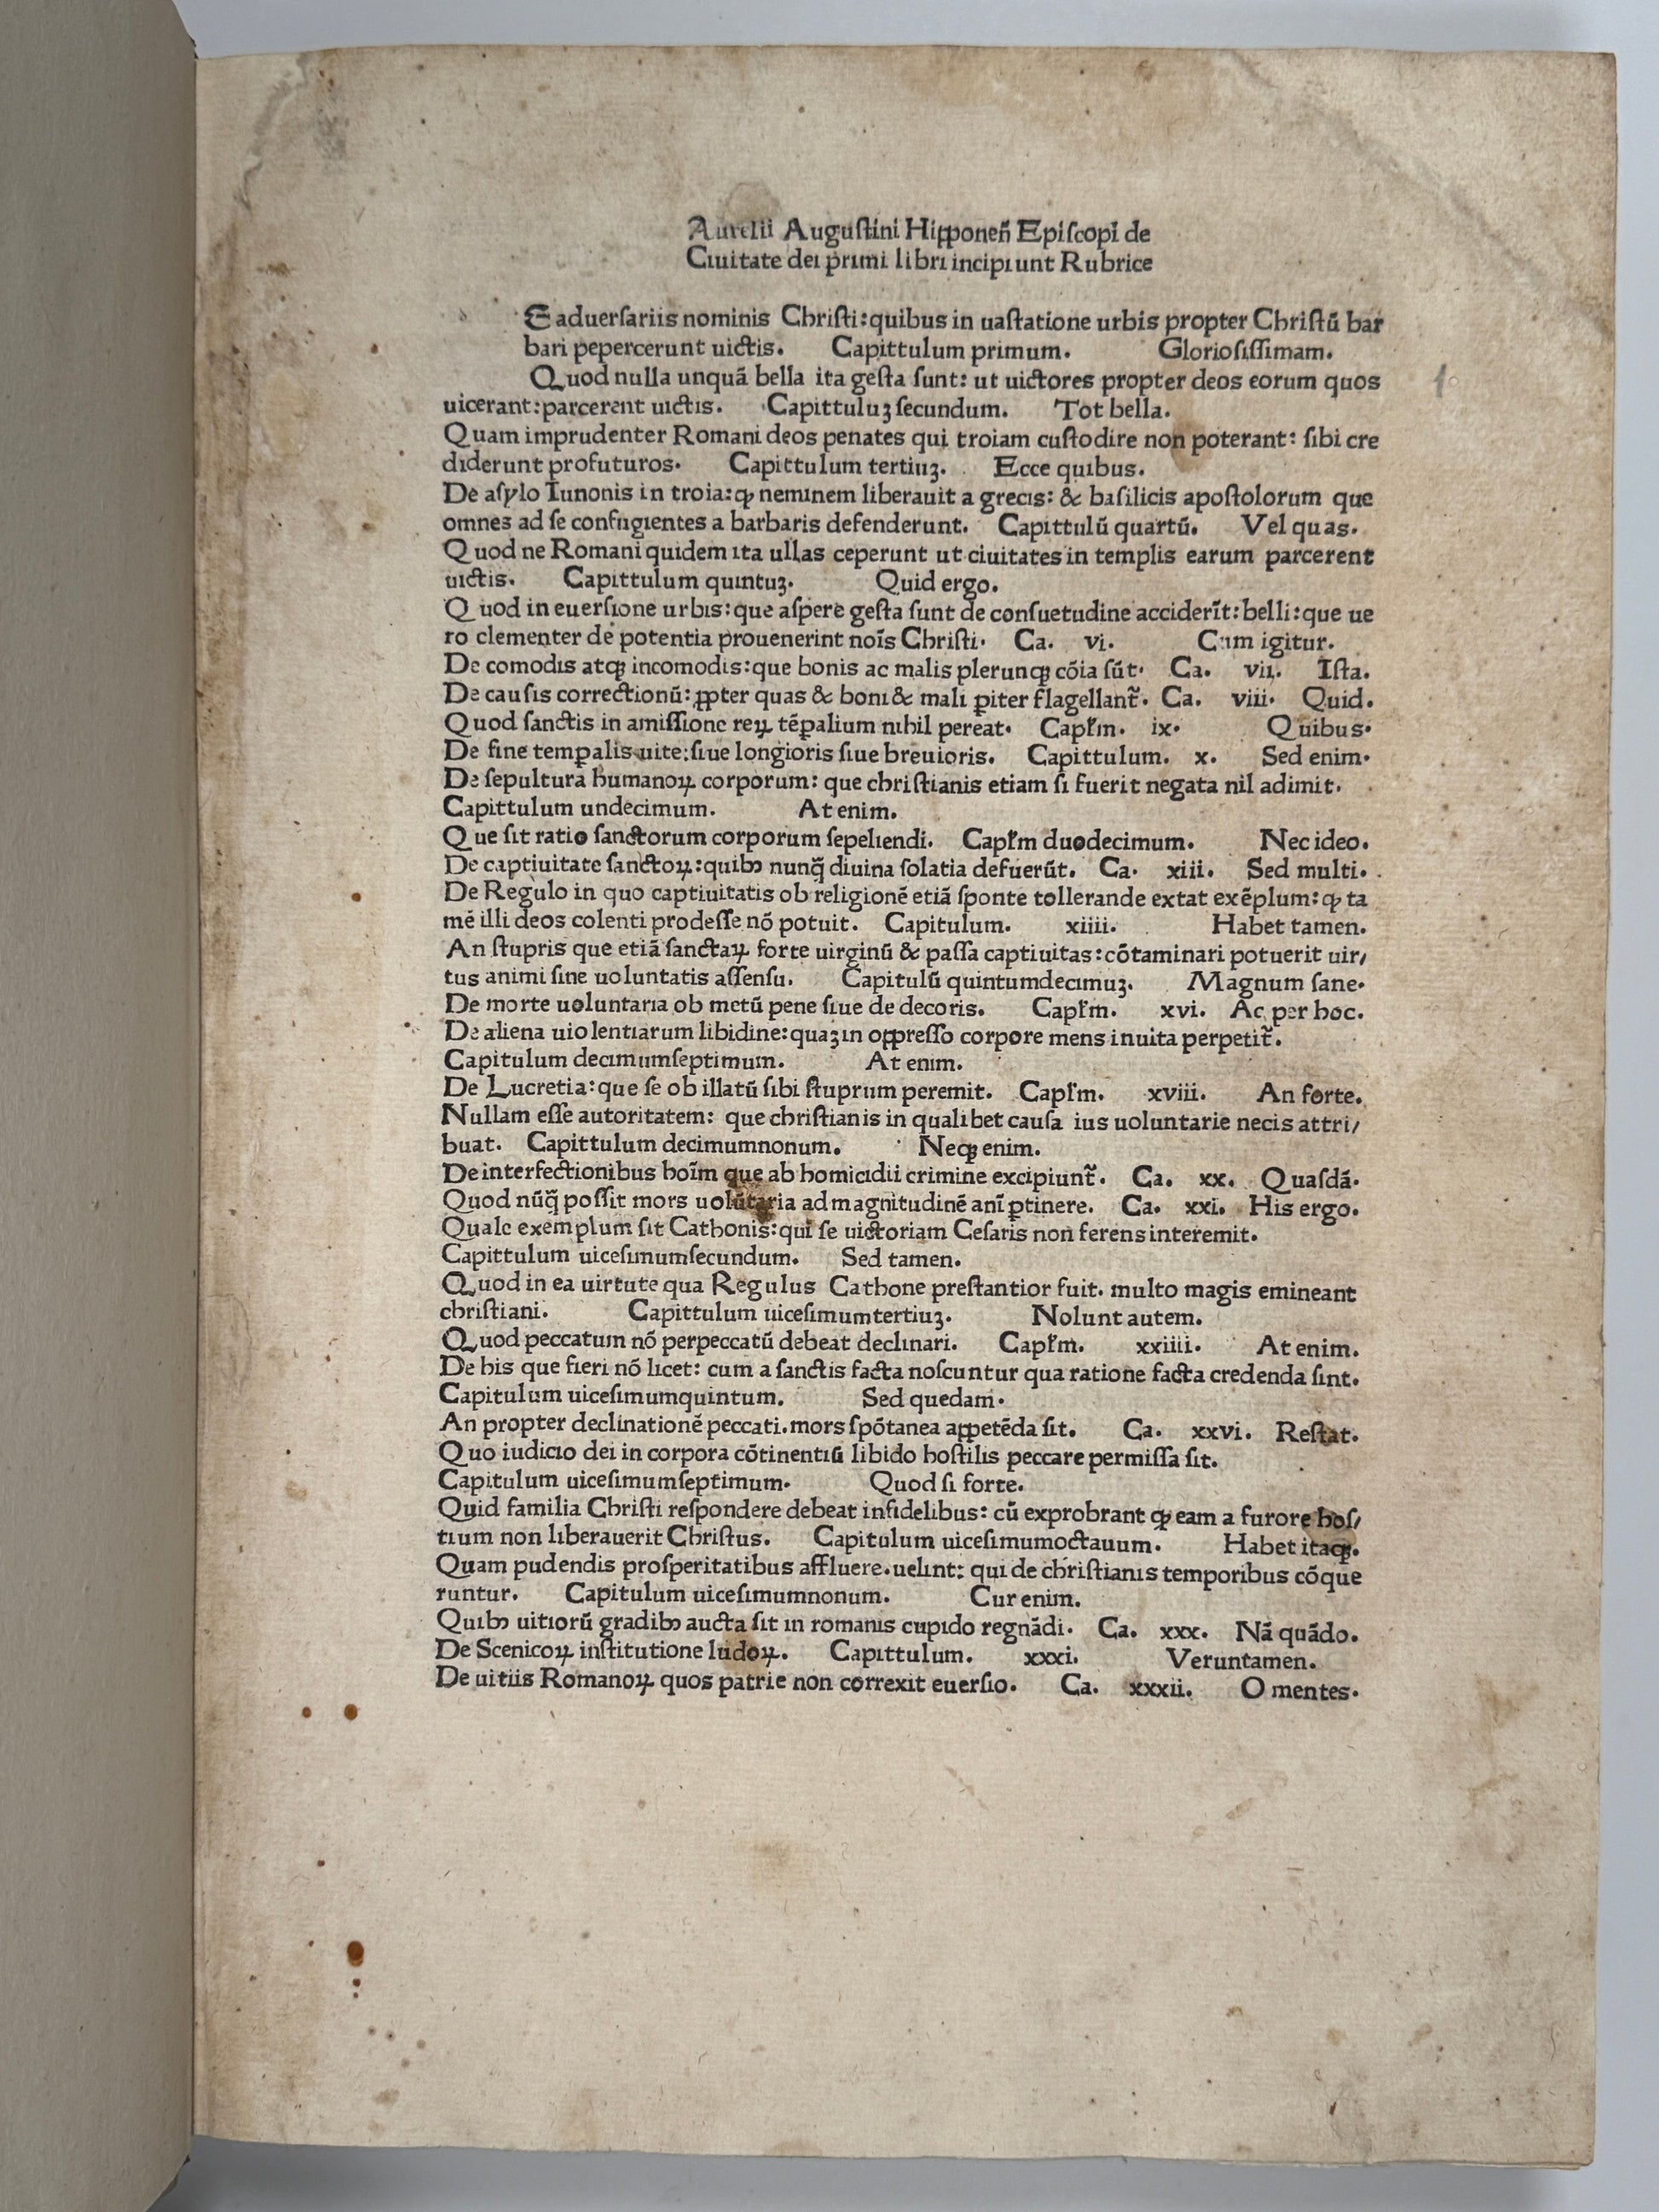 Aurelii Augustini Hipponen̄ Episcopi de
Ciuitate dei primi libri incipiunt Rubrice
E aduerſariis nominis Chriſti:quibus in uaſtatione urbis propter Chriſtū bar
bari pepercerunt uictis. Capittulum primum. Glorioſiſſimam.
Quod nulla unquā bella ita geſta ſunt: ut uictores propter deos eorum quos
1
uicerant:parcerent uictis. Capittuluꝫ ſecundum. Tot bella.
Quam imprudenter Romani deos penates qui troiam cuſtodire non poterant: ſibi cre
diderunt profuturos. Capittulum tertiuꝫ. Ecce quibus.
De aſylo Iunonis in troia:ꝙ neminem liberauit a grecis: & baſilicis apoſtolorum que
omnes ad ſe confugientes a barbaris defenderunt. Capittulū quartū. Vel quas.
Quod ne Romani quidem ita ullas ceperunt ut ciuitates in templis earum parcerent
uictis. Capittulum quintuꝫ. Quid ergo.
Quod in euerſione urbis:que aſpere geſta ſunt de conſuetudine acciderīt:belli:que ue
ro clementer de potentia prouenerint noīs Chriſti. Ca. vi. Cum igitur.
De comodis atqꝫ incomodis:que bonis ac malis plerunqꝫ cōia ſūt. Ca. vii. Iſta.
De cauſis correctionū: ꝓpter quas & boni & mali ꝑiter flagellant̃. Ca. viii. Quid.
Quod ſanctis in amiſſione reꝝ tēꝑalium nihil pereat. Capľm. ix. Quibus.
De fine temꝑalis uite:ſiue longioris ſiue breuioris. Capittulum. x. Sed enim.
De ſepultura humanoꝝ corporum: que chriſtianis etiam ſi fuerit negata nil adimit.
Capittulum undecimum. At enim.
Que ſit ratio ſanctorum corporum ſepeliendi. Capľm duodecimum. Nec ideo.
De captiuitate ſanctoꝝ:quibꝰ nunq̄ diuina ſolatia defuerūt. Ca. xiii. Sed multi.
De Regulo in quo captiuitatis ob religionē etiā ſponte tollerande extat exēplum:ꝙ ta
mē illi deos colenti prodeſſe nō potuit. Capitulum. xiiii. Habet tamen.
An ſtupris que etiā ſanctaꝝ forte uirginū & paſſa captiuitas:cōtaminari potuerit uir/
tus animi ſine uoluntatis aſſenſu. Capitulū quintumdecimuꝫ. Magnum ſane.
De morte uoluntaria ob metū pene ſiue de decoris. Capľm. xvi. Ac per hoc.
De aliena uiolentiarum libidine:quaꝫ in oppreſſo corpore mens inuita perpetit̃.
Capitulum decimumſeptimum. At enim.
De Lucretia:que ſe ob illatū ſibi ſtuprum peremit. Capľm. xviii. An forte.
Nullam eſſe autoritatem: que chriſtianis in qualibet cauſa ius uoluntarie necis attri/
buat. Capittulum decimumnonum. Neqꝫ enim.
De interfectionibus hoīm que ab homicidii crimine excipiunt̃. Ca. xx. Quaſdā.
Quod nūq̄ poſſit mors uolūtaria ad magnitudinē anī ꝑtinere. Ca. xxi. His ergo.
Quale exemplum ſit Cathonis:qui ſe uictoriam Ceſaris non ferens interemit.
Capittulum uiceſimumſecundum. Sed tamen.
Quod in ea uirtute qua Regulus Cathone preſtantior fuit. multo magis emineant
chriſtiani. Capittulum uiceſimumtertiuꝫ. Nolunt autem.
Quod peccatum nō perpeccatū debeat declinari. Capľm. xxiiii. At enim.
De his que fieri nō licet: cum a ſanctis facta noſcuntur qua ratione facta credenda ſint.
Capitulum uiceſimumquintum. Sed quedam.
An propter declinationē peccati.mors ſpōtanea appetēda ſit. Ca. xxvi. Reſtat.
Quo iudicio dei in corpora cōtinentiū libido hoſtilis peccare permiſſa ſit.
Capitulum uiceſimumſeptimum. Quod ſi forte.
Quid familia Chriſti reſpondere debeat infidelibus: cū exprobrant ꝙ eam a furore hoſ/
tium non liberauerit Chriſtus. Capitulum uiceſimumoctauum. Habet itaqꝫ.
Quam pudendis proſperitatibus affluere.uelint: qui de chriſtianis temporibus cōque
runtur. Capitulum uiceſimumnonum. Cur enim.
Quibꝰ uitiorū gradibꝰ aucta ſit in romanis cupido regnādi. Ca. xxx. Nā quādo.
De Scenicoꝝ inſtitutione ludoꝝ. Capittulum. xxxi. Veruntamen.
De uitiis Romanoꝝ quos patrie non correxit euerſio. Ca. xxxii. O mentes.